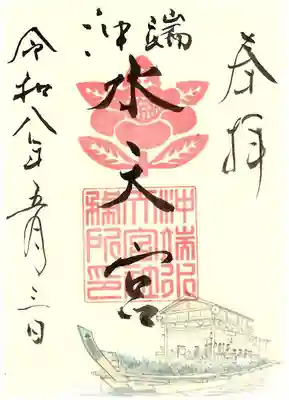 奉拝
沖端
水天宮
沖端水天宮社務所印
令和八年五月三日